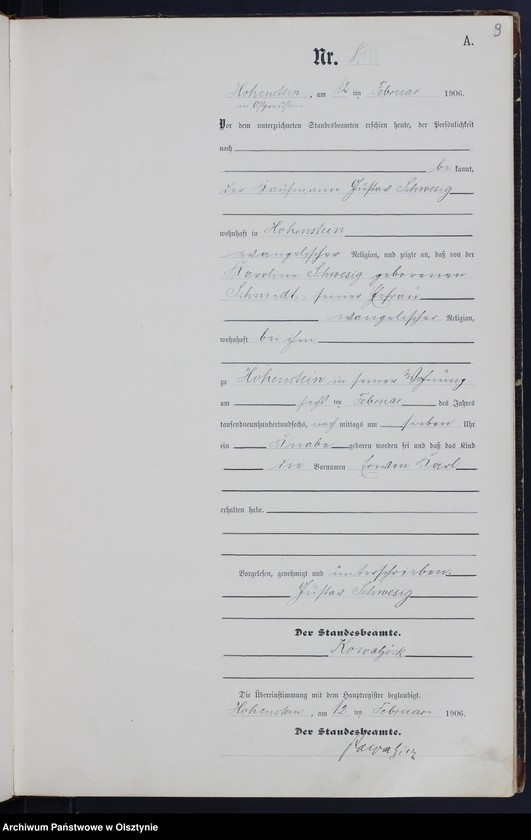 9
A.
Nr. 8
Hohenstein, am 12 ten Februar 1906.
in Ostpreußen
Vor dem unterzeichneten Standesbeamten erschien heute, der Persönlichkeit
nach
be kannt,
der Kaufmann Gustav Schwesig
wohnhaft in Hohenstein
evangelischer Religion, und zeigte an, daß von der
Karoline Schwesig geborenen
Schmidt, seiner Ehefrau
evangelischer Religion,
wohnhaft bei ihm
zu Hohenstein in seiner Wohnung
am sechs ten Februar des Jahres
tausendneunhundertundsechs, nach mittags um sieben Uhr
ein Knabe geboren worden sei und daß das Kind
die Vornamen Erwin Karl
erhalten habe.
Vorgelesen, genehmigt und unterschrieben.
Gustav Schwesig
Der Standesbeamte.
Kowalzick
Die Übereinstimmung mit dem Hauptregister beglaubigt.
Hohenstein, am 12 ten Februar 1906.
Der Standesbeamte.
Kowalzick
Archiwum Państwowe w Olsztynie